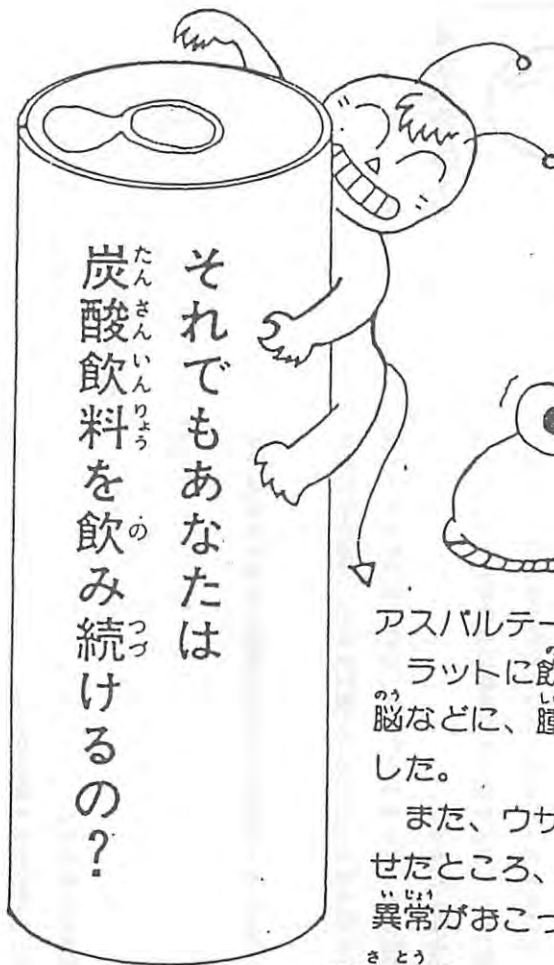 それでもあなたは
炭酸飲料を飲み続けるの？
アスパルテー
ラットに飲
脳などに、腫
した。
また、ウサ
せたところ、
異常がおこっ
さとう